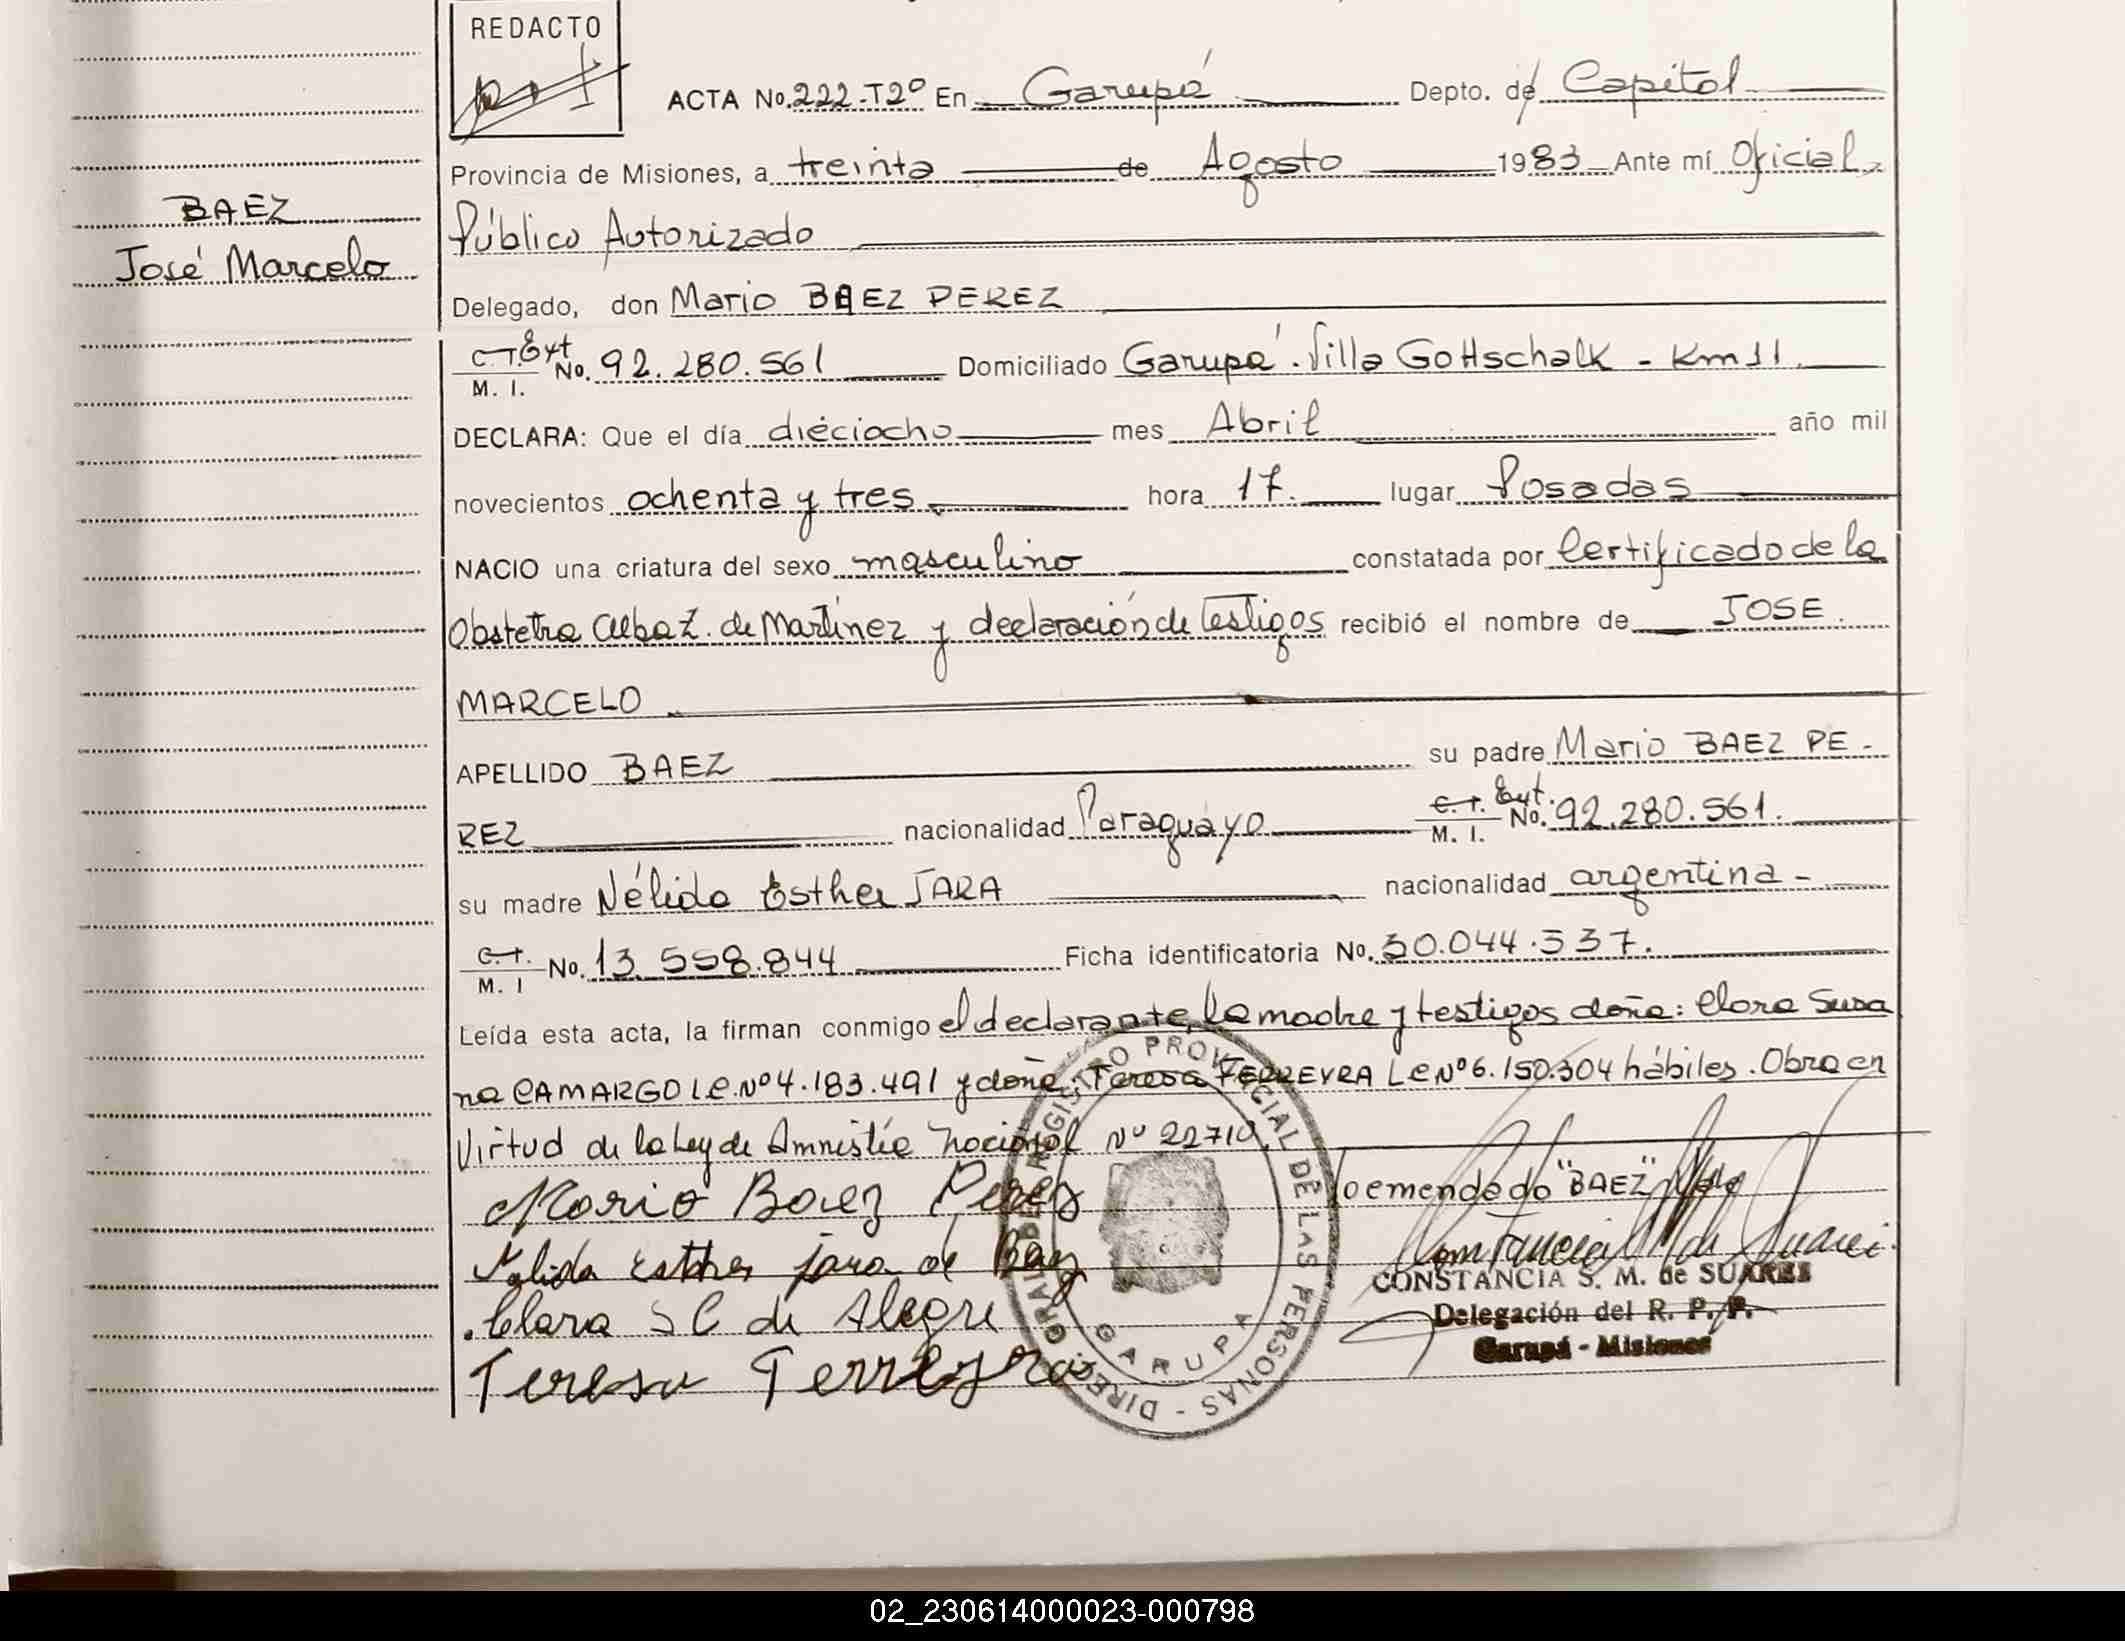 REDACTO
ACTA No. 222-T2º En Garupá Depto. de Capital
Provincia de Misiones, a treinta de Agosto 1983 Ante mí Oficial
Público Autorizado
BAEZ
José Marcelo
Delegado, don Mario BAEZ PEREZ
C.T. Ext M. I. No. 92.280.561 Domiciliado Garupá. Villa Gottschalk - Km 11.
DECLARA: Que el día dieciocho mes Abril año mil
novecientos ochenta y tres hora 17. lugar Posadas
NACIO una criatura del sexo masculino constatada por Certificado de la
Obstetra Alba Z. de Martínez y declaración de Testigos recibió el nombre de JOSE
MARCELO
APELLIDO BAEZ su padre Mario BAEZ PE-
REZ nacionalidad Paraguayo C. T. Ext. M. I. No. 92.280.561.
su madre Nélida Esther JARA nacionalidad argentina -
C. T. M. I No. 13.558.844 Ficha identificatoria No. 30.044.537.
Leída esta acta, la firman conmigo el declarante, la madre y testigos doña: Clara Susa
na CAMARGO L.e.Nº 4.183.491 y doña: Teresa FERREYRA Le Nº 6.150.304 hábiles. Obra en
Virtud de la Ley de Amnistía Nacional Nº 22710.
Mario Baez Perez
lo emendado "BAEZ" Vale
Nelida Esther jara de Baez
Clara S C de Alegre
Teresa Ferreyra
DIRECCION GRAL. DE REGISTRO PROVINCIAL DE LAS PERSONAS - GARUPA
Constancia M de Suarez
CONSTANCIA S. M. de SUARES
Delegación del R. P. P.
Garupá - Misiones
02_230614000023-000798